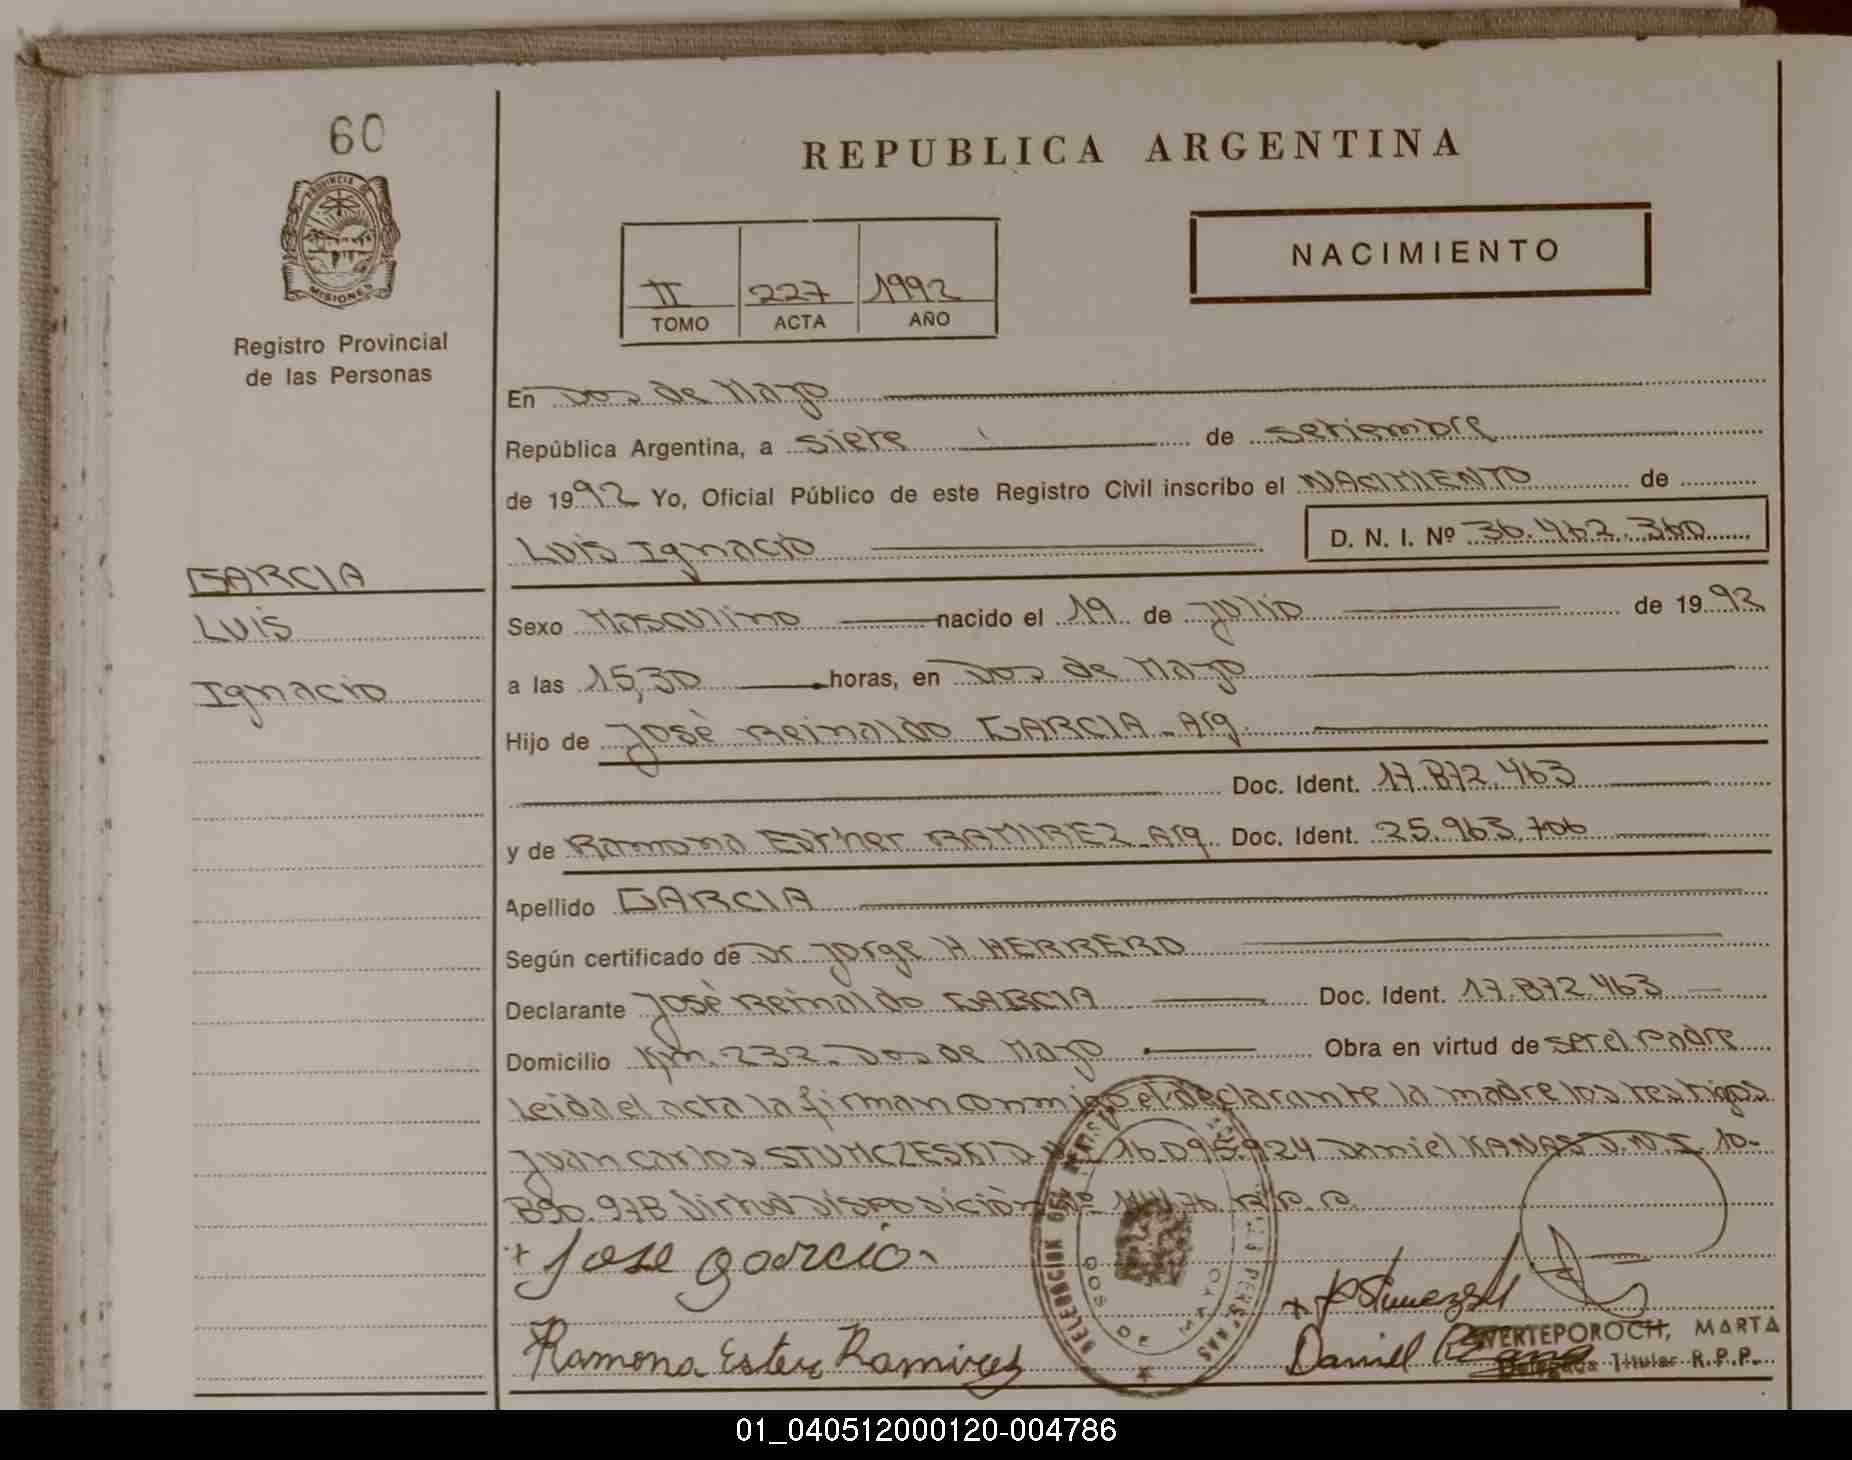 60
REPUBLICA ARGENTINA
PROVINCIA DE
MISIONES
NACIMIENTO
II 227 1992
TOMO ACTA AÑO
Registro Provincial
de las Personas
En Dos de Mayo
República Argentina, a siete de setiembre
de 1992 Yo, Oficial Público de este Registro Civil inscribo el NACIMIENTO de
Luis Ignacio D. N. I. Nº 36.462.360
GARCIA
Luis
Ignacio
Sexo Masculino nacido el 19 de julio de 1992
a las 15,30 horas, en Dos de Mayo
Hijo de Josè Reinaldo GARCIA - Arg.
Doc. Ident. 17.872.463
y de Ramona Esther RAMIREZ - Arg. Doc. Ident. 25.963.706
Apellido GARCIA
Según certificado de Dr Jorge H. HERRERO
Declarante Josè Reinaldo GARCIA Doc. Ident. 17.872.463
Domicilio Km. 232 - Dos de Mayo Obra en virtud de ser el padre
leida el acta la firman conmigo el declarante la madre los testigos
Juan Carlos STUMCZESKI D 16.095.924 Daniel KANAS D.N.I. 10-
890.978 Virtud Disposiciòn Nº R.P.P.
+ Jose garcia
Ramona Ester Ramirez
Daniel
WERTEPOROCH, MARTA
Delegada Titular R.P.P.
DELEGACION DEL REGISTRO
DE LAS PERSONAS
DOS DE MAYO
01_040512000120-004786